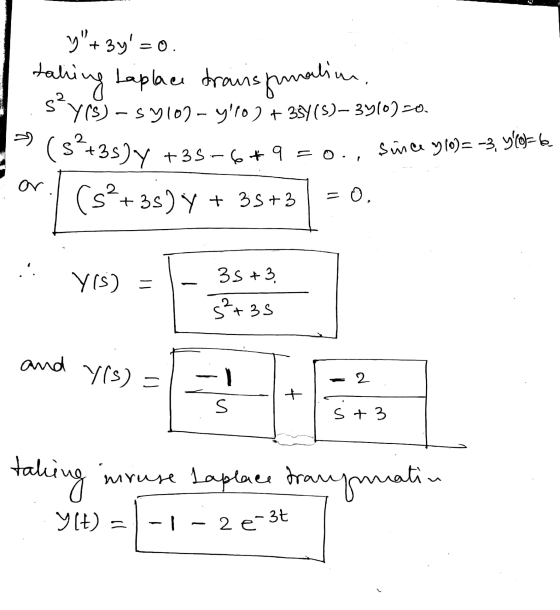 y" + 3y' = 0.
taking Laplace transformation.
s²Y(s) - sy(0) - y'(0) + 3sY(s) - 3y(0) = 0.
⇒ (s²+3s)Y + 3s - 6 + 9 = 0., since y(0) = -3, y'(0) = 6
or. (s²+3s)Y + 3s+3 = 0.
∴ Y(s) = - (3s+3)/(s²+3s)
and Y(s) = -1/s + -2/(s+3)
taking inverse Laplace transformation
y(t) = -1 - 2e^(-3t)